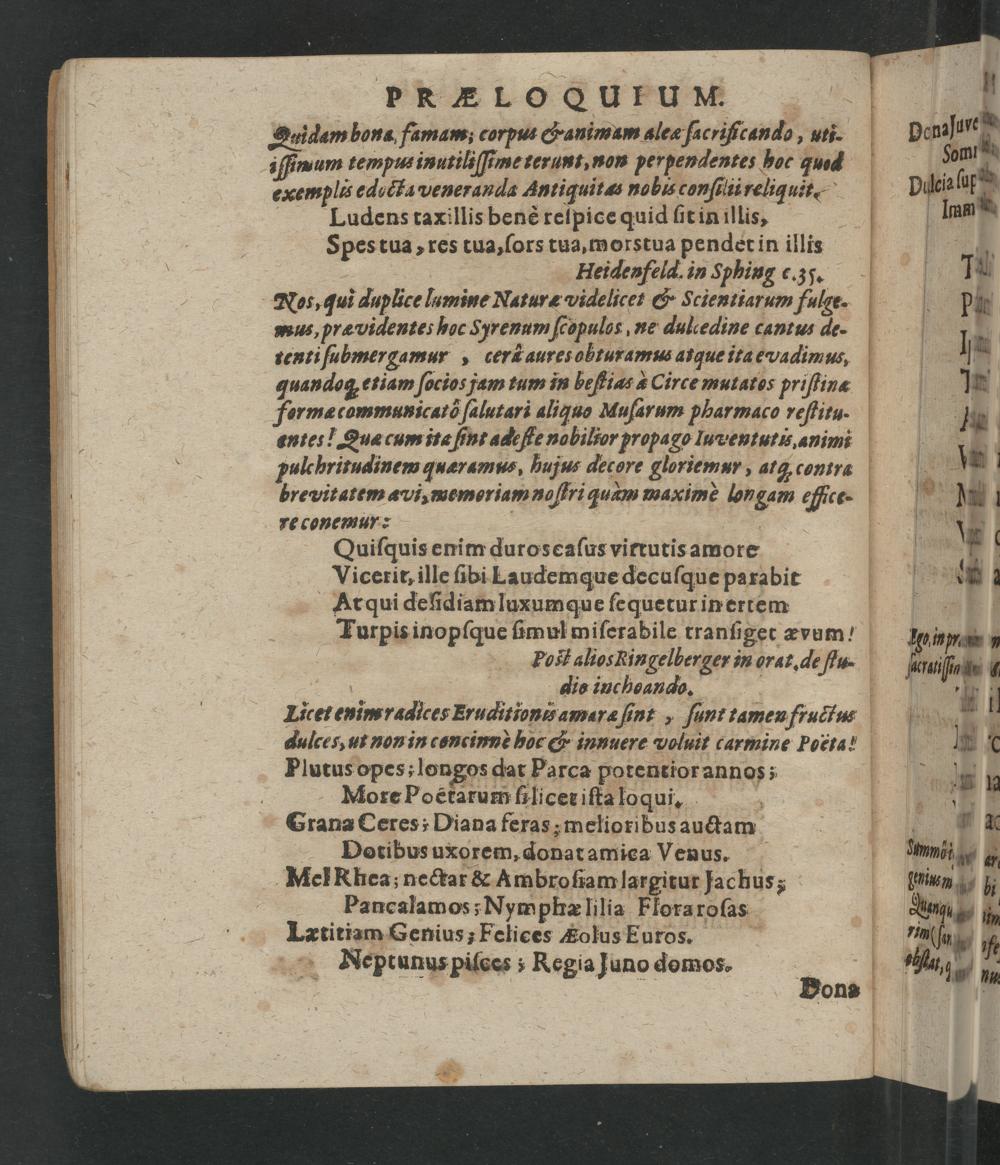 PRÆLOQUIUM.
Quidam bona, famam; corpus & animam aleæ sacrificando, uti-
issimum tempus inutilissime terunt, non perpendentes hoc quod
exemplis edocta veneranda Antiquitas nobis consilii reliquit.
Ludens taxillis benè respice quid sit in illis,
Spes tua, res tua, sors tua, mors tua pendet in illis
Heidenfeld. in Sphing c.35.
Nos, qui duplice lumine Naturæ videlicet & Scientiarum fulge-
mus, prævidentes hoc Syrenum scopulos, ne dulcedine cantus de-
tenti submergamur, cerâ aures obturamus atque ita evadimus,
quandoq; etiam socios jam tum in bestias à Circe mutatos pristinæ
formæ communicatô salutari aliquo Musarum pharmaco restitu-
entes! Quæ cum ita sint adeste nobilior propago Iuventutis, animi
pulchritudinem quæramus, hujus decore gloriemur, atq; contra
brevitatem ævi, memoriam nostri quàm maximè longam effice-
re conemur:
Quisquis enim duros casus virtutis amore
Vicerit, ille sibi Laudemque decusque parabit
At qui desidiam luxumque sequetur inertem
Turpis inopsque simul miserabile transiget ævum!
Post alios Ringelberger in orat. de stu-
dio inchoando.
Licet enim radices Eruditionis amaræ sint, sunt tamen fructus
dulces, ut non in concinnè hoc & innuere voluit carmine Poëta!
Plutus opes; longos dat Parca potentior annos;
More Poëtarum si licet ista loqui.
Grana Ceres; Diana feras; melioribus auctam
Dotibus uxorem, donat amica Venus.
Mel Rhea; nectar & Ambrosiam largitur Jachus;
Pan calamos; Nymphæ lilia Flora rosas
Lætitiam Genius; Felices Æolus Euros.
Neptunus pisces; Regia Juno domos.
Dona
Dona Juve
Somn
Dulcia sup
Inam
Ego, in pr
sacratissi
Summô
genius m
Quanqu
rim (san
obstat, q